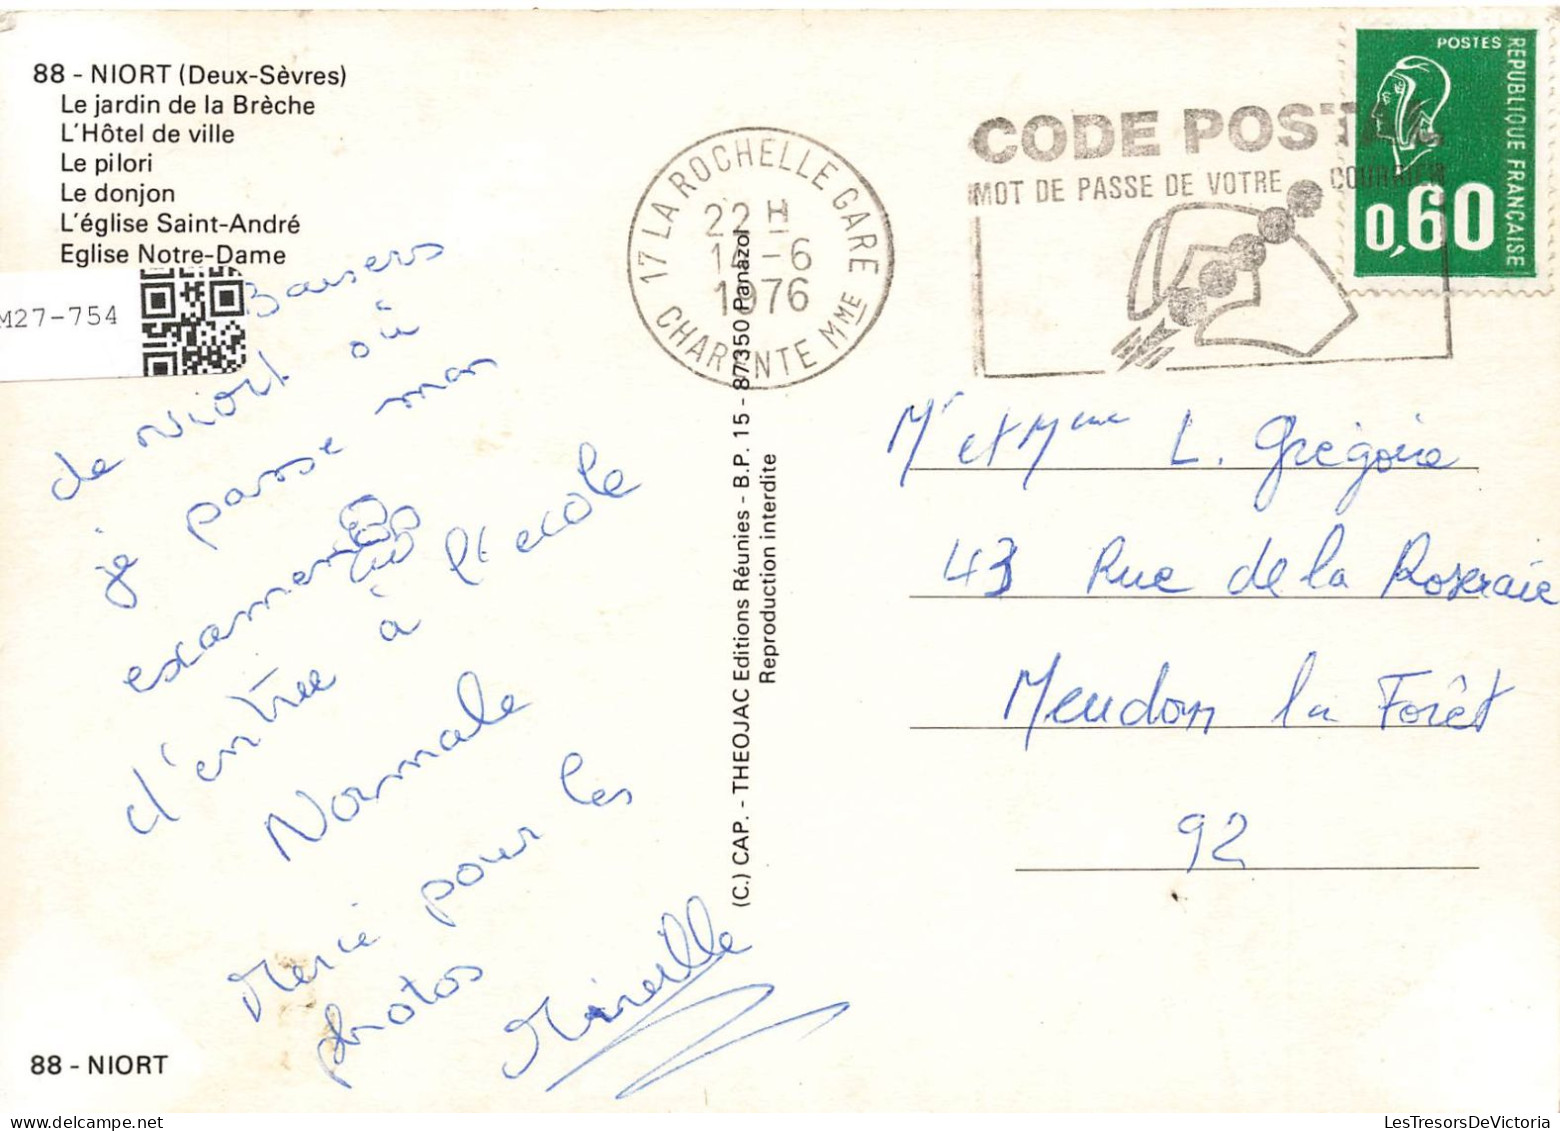 88 - NIORT (Deux-Sèvres)
Le jardin de la Brèche
L'Hôtel de ville
Le pilori
Le donjon
L'église Saint-André
Eglise Notre-Dame
M27-754
Baisers
de Niort où
je passe mon
examen
d'entrée à l'école
Normale
Merci pour les
photos
Mireille
88 - NIORT
(C.) CAP. - THEOJAC Editions Réunies - B.P. 15 - 87350 Panazol
Reproduction interdite
17 LA ROCHELLE GARE
22 H
14-6
1976
CHARENTE MME
CODE POSTAL
MOT DE PASSE DE VOTRE COURRIER
POSTES
REPUBLIQUE FRANÇAISE
0,60
Mr et Mme L. Grégoire
43 Rue de la Roseraie
Meudon la Forêt
92
LesTresorsDeVictoria